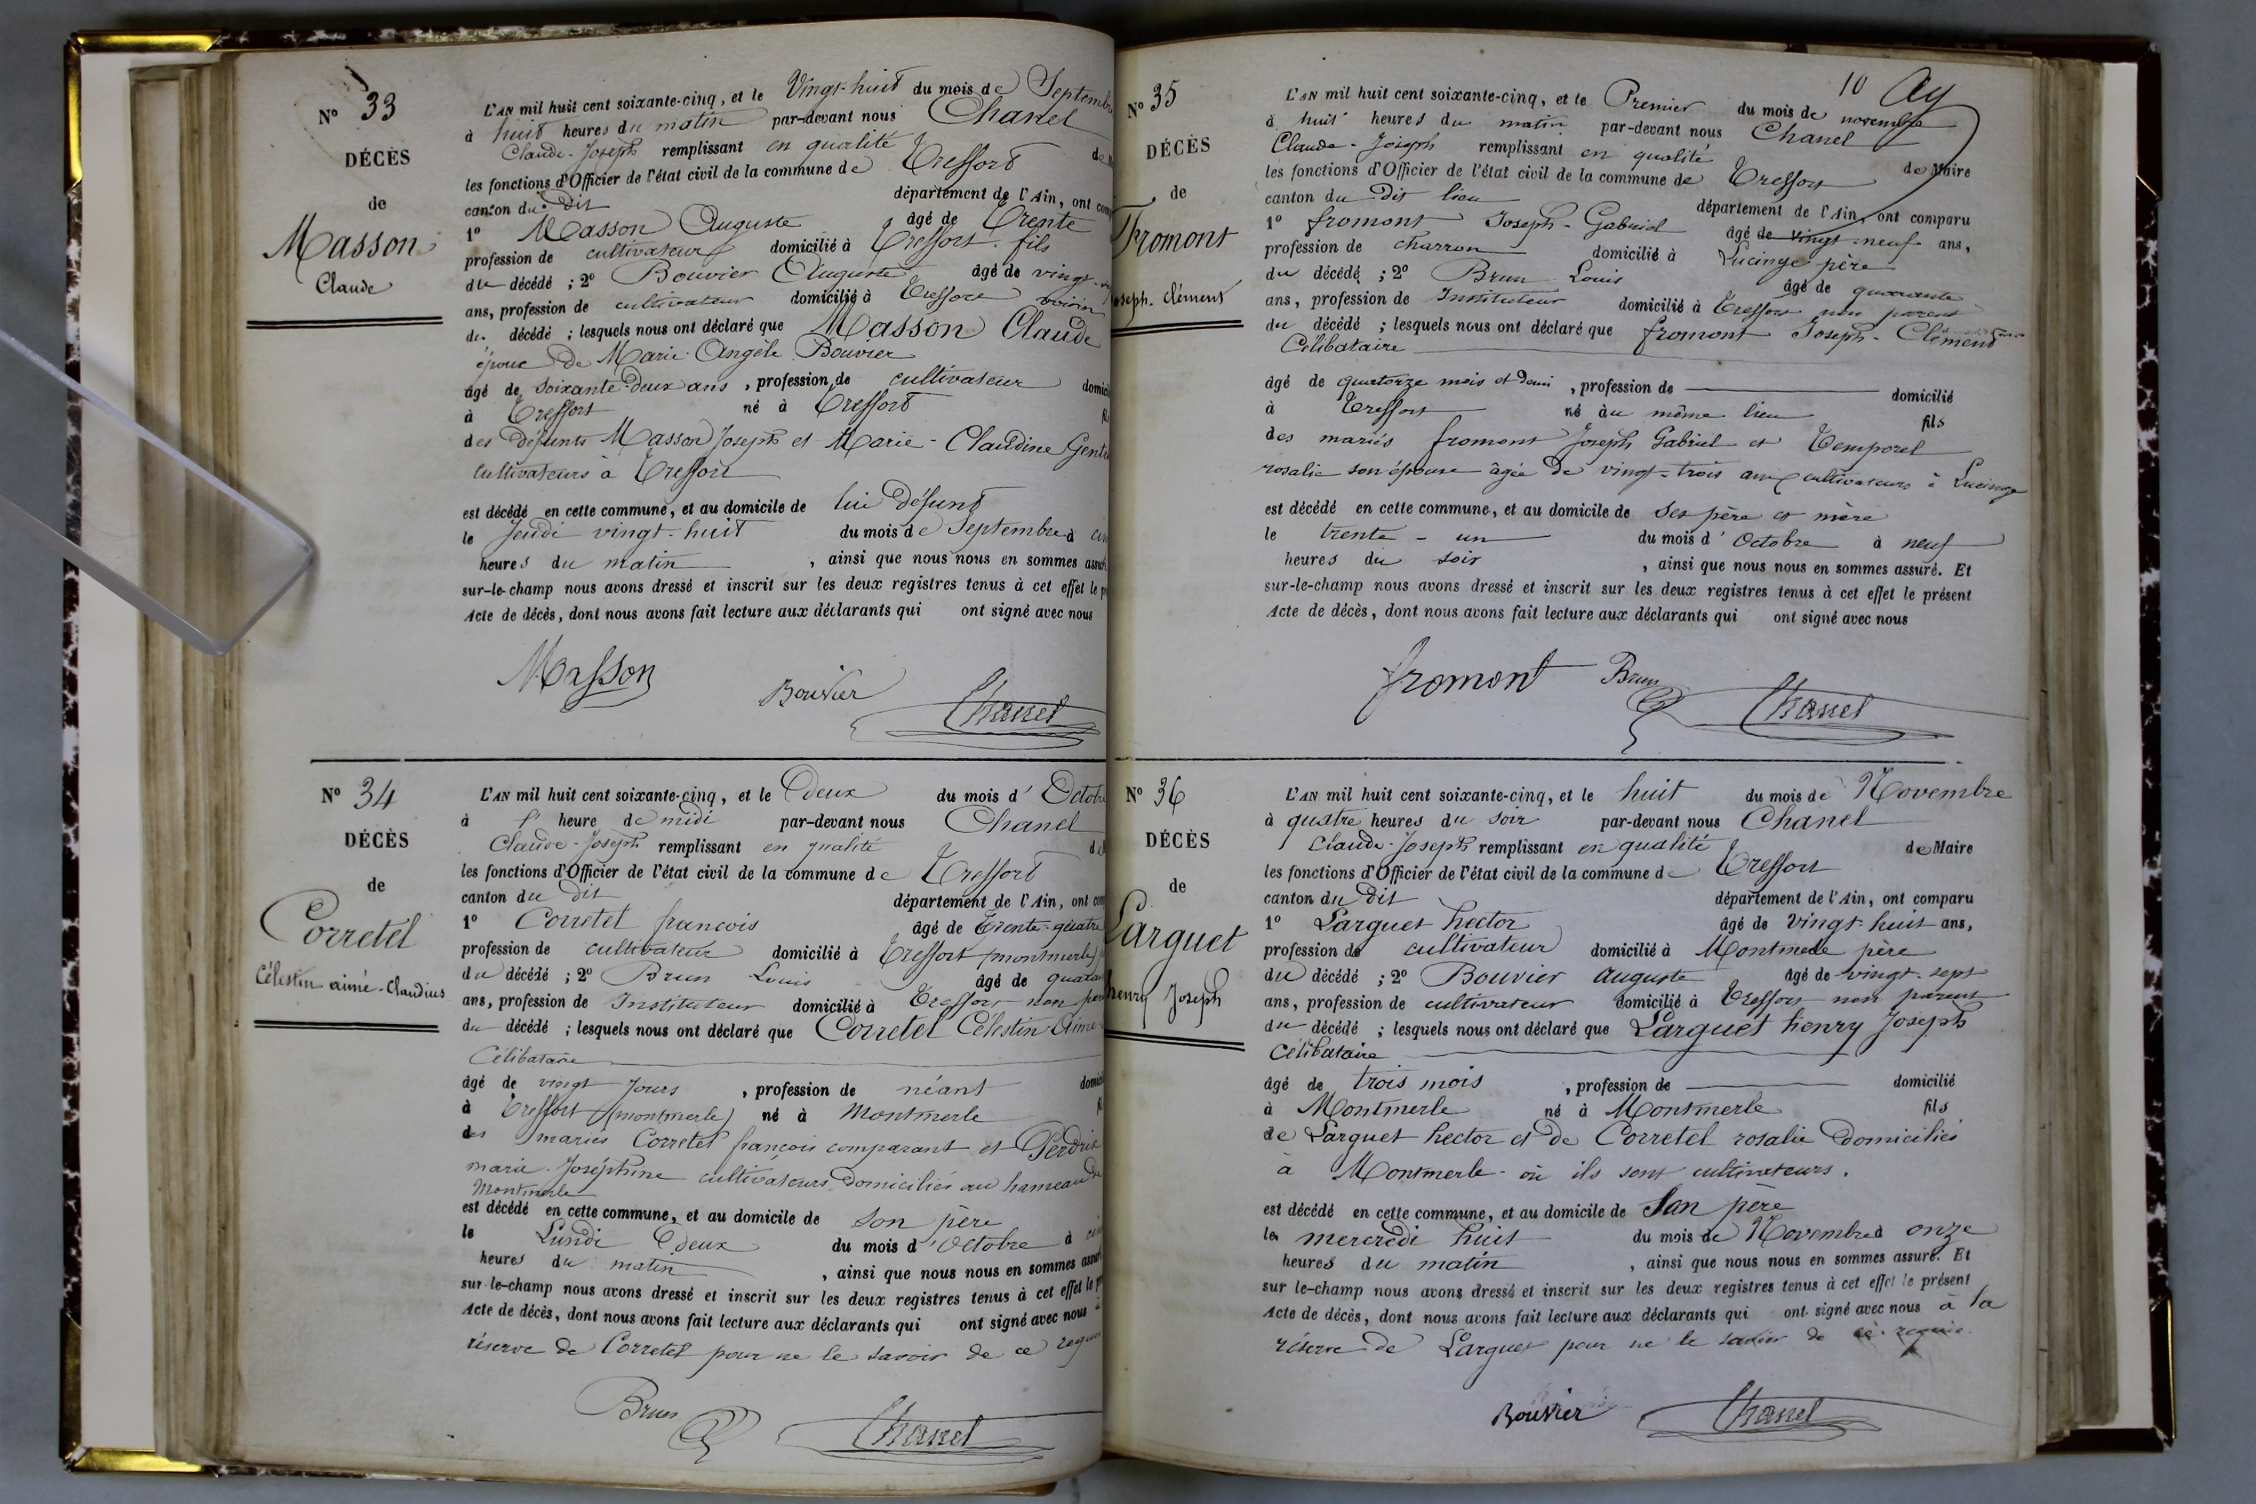 N° 33
DÉCÈS
de
Masson
Claude
L'AN mil huit cent soixante-cinq, et le Vingt-huit du mois de Septembre
à huit heures du matin par-devant nous Chanel
Claude-Joseph remplissant en qualité
les fonctions d'Officier de l'état civil de la commune de Treffort
canton du dit département de l'Ain, ont
1° Masson Auguste âgé de Trente
profession de cultivateur domicilié à Treffort fils
du décédé ; 2° Bouvier Auguste âgé de vingt
ans, profession de cultivateur domicilié à Treffort voisin
du décédé ; lesquels nous ont déclaré que Masson Claude
époux de Marie Angèle Bouvier
âgé de soixante-deux ans, profession de cultivateur
à Treffort né à Treffort
des défunts Masson Joseph et Marie-Claudine
cultivateurs à Treffort
est décédé en cette commune, et au domicile de lui défunt
le Jeudi vingt-huit du mois de Septembre à
heures du matin, ainsi que nous nous en sommes
sur-le-champ nous avons dressé et inscrit sur les deux registres tenus à cet effet le
Acte de décès, dont nous avons fait lecture aux déclarants qui ont signé avec nous
Masson Bouvier Chanel
N° 34
DÉCÈS
de
Corretel
Célestin aimé-Claudius
L'AN mil huit cent soixante-cinq, et le deux du mois d'Octobre
à 1' heure de midi par-devant nous Chanel
Claude-Joseph remplissant en qualité
les fonctions d'Officier de l'état civil de la commune de Treffort
canton du dit département de l'Ain, ont
1° Corretel françois âgé de Trente-quatre
profession de cultivateur domicilié à Treffort (montmerle)
du décédé ; 2° Brun Louis âgé de
ans, profession de Instituteur domicilié à Treffort non
du décédé ; lesquels nous ont déclaré que Corretel Célestin Aimé
Célibataire
âgé de vingt Jours, profession de néant
à Treffort (montmerle) né à Montmerle
des mariés Corretel françois comparant et Perdrix
marie-Joséphine cultivateurs domiciliés au hameau de
Montmerle
est décédé en cette commune, et au domicile de son père
le Lundi deux du mois d'Octobre à
heures du matin, ainsi que nous nous en sommes
sur-le-champ nous avons dressé et inscrit sur les deux registres tenus à cet effet le
Acte de décès, dont nous avons fait lecture aux déclarants qui ont signé avec nous à
réserve de Corretel pour ne le savoir de ce
Brun Chanel
10
N° 35
DÉCÈS
de
Fromont
Joseph-Clément
L'AN mil huit cent soixante-cinq, et le Premier du mois de novembre
à huit heures du matin par-devant nous Chanel
Claude-Joseph remplissant en qualité de Maire
les fonctions d'Officier de l'état civil de la commune de Treffort
canton du dit lieu département de l'Ain, ont comparu
1° fromont Joseph-Gabriel âgé de vingt-neuf ans,
profession de charron domicilié à Lucinge père
du décédé ; 2° Brun Louis âgé de quarante
ans, profession de Instituteur domicilié à Treffort non parent
du décédé ; lesquels nous ont déclaré que fromont Joseph-Clément
Célibataire
âgé de quatorze mois et demi, profession de domicilié
à Treffort né au même lieu fils
des mariés fromont Joseph Gabriel et Temporel
rosalie son épouse âgée de vingt-trois ans cultivateurs à Lucinge
est décédé en cette commune, et au domicile de ses père et mère
le trente-un du mois d'Octobre à neuf
heures du soir, ainsi que nous nous en sommes assuré. Et
sur-le-champ nous avons dressé et inscrit sur les deux registres tenus à cet effet le présent
Acte de décès, dont nous avons fait lecture aux déclarants qui ont signé avec nous
fromont Brun Chanel
N° 36
DÉCÈS
de
Larguet
henry Joseph
L'AN mil huit cent soixante-cinq, et le huit du mois de Novembre
à quatre heures du soir par-devant nous Chanel
Claude-Joseph remplissant en qualité de Maire
les fonctions d'Officier de l'état civil de la commune de Treffort
canton du dit département de l'Ain, ont comparu
1° Larguet hector âgé de vingt-huit ans,
profession de cultivateur domicilié à Montmerle père
du décédé ; 2° Bouvier auguste âgé de vingt-sept
ans, profession de cultivateur domicilié à Treffort non parent
du décédé ; lesquels nous ont déclaré que Larguet henry Joseph
Célibataire
âgé de trois mois, profession de domicilié
à Montmerle né à Montmerle fils
de Larguet hector et de Corretel rosalie domiciliés
à Montmerle où ils sont cultivateurs.
est décédé en cette commune, et au domicile de Son père
le mercredi huit du mois de Novembre à onze
heures du matin, ainsi que nous nous en sommes assuré. Et
sur le-champ nous avons dressé et inscrit sur les deux registres tenus à cet effet le présent
Acte de décès, dont nous avons fait lecture aux déclarants qui ont signé avec nous à la
réserve de Larguet pour ne le savoir de ce requis
Bouvier Chanel